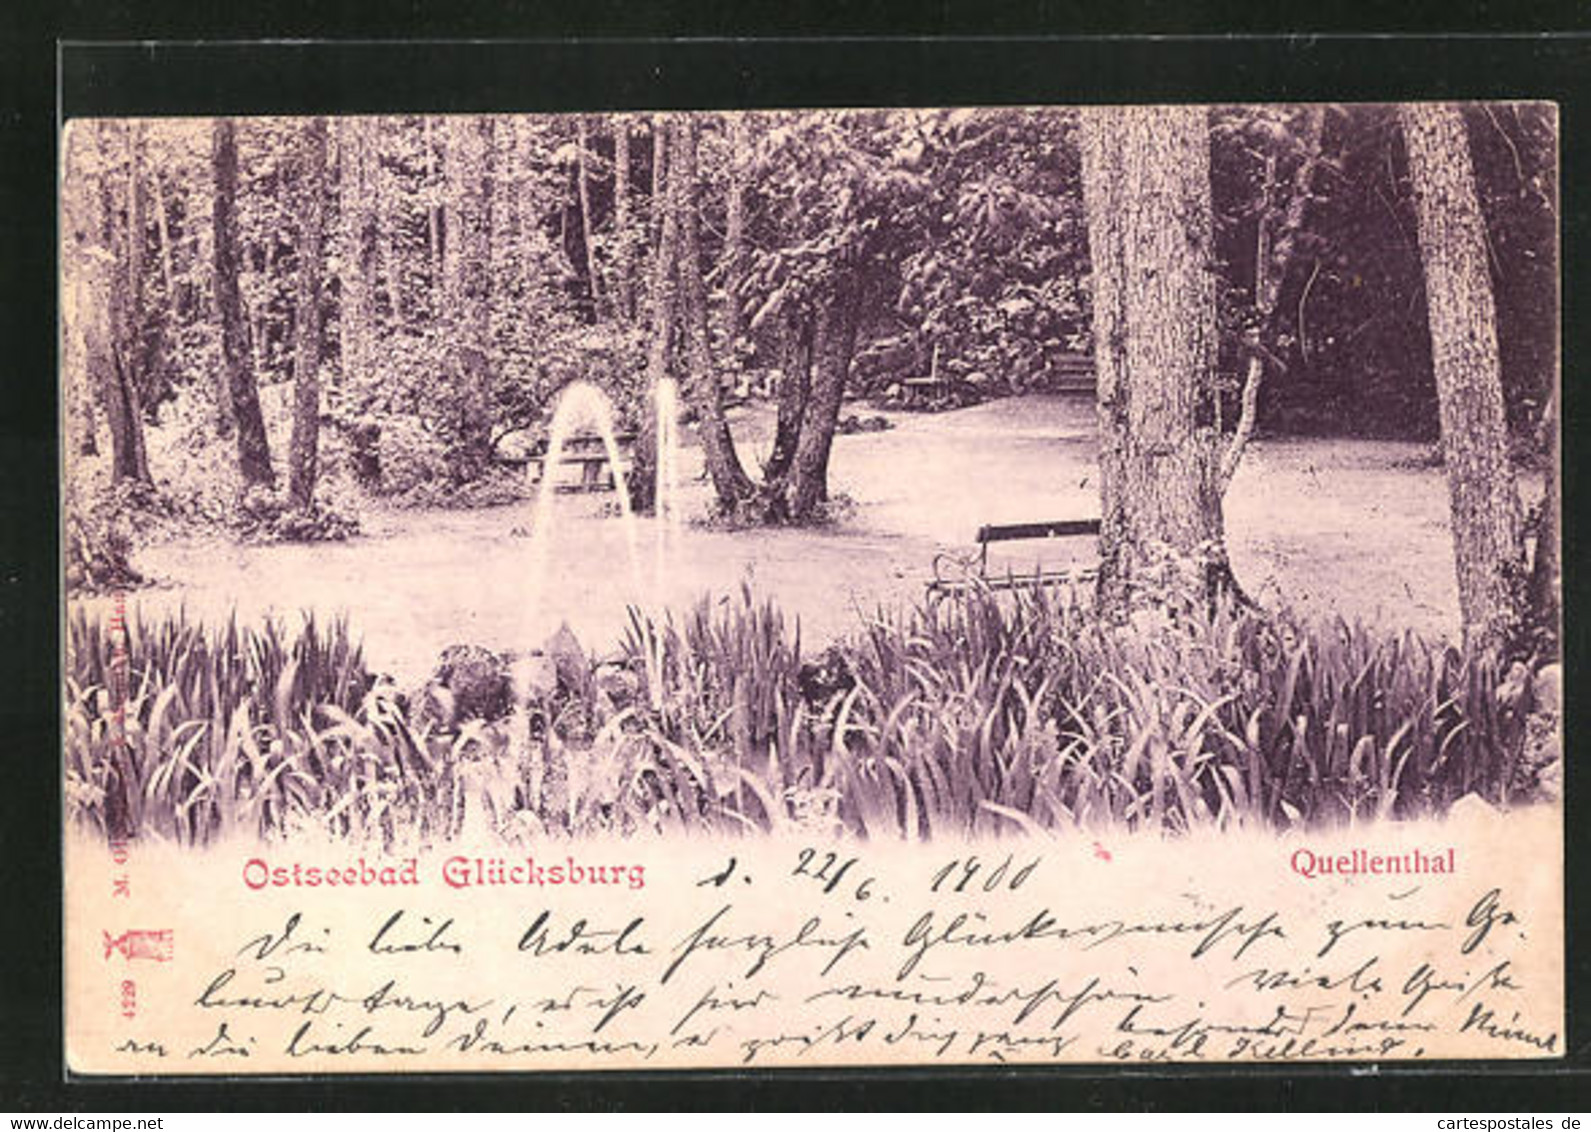 Ostseebad Glücksburg d. 22/6. 1900 Quellenthal
Dir liebe Adele herzliche Glückwünsche zum Ge-
burtstage, es ist hier wunderschön. Viele Grüße
an die lieben Deinen, es grüßt Dich ganz besonders Dein
M. Gl
4229
www.delcampe.net
cartespostales de